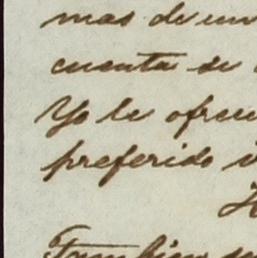 mas de un
cuenta de
Yo le ofrec
preferido
H
Tambien